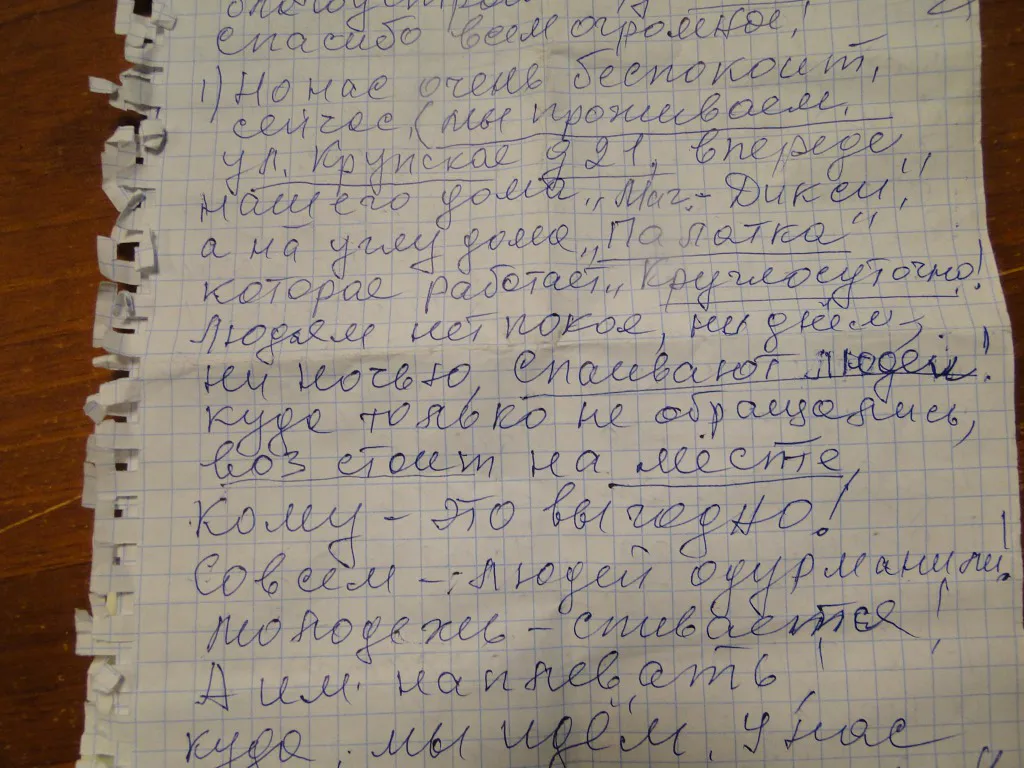 спасибо всем огромное!
1) Но нас очень беспокоит,
сейчас, (мы проживаем.
ул. Крупская д 21, впереди,
нашего дома „Маг.- Дикси",
а на углу дома „Палатка"
которая работает„ Круглосуточно!
Людям нет покоя, ни днём,
ни ночью, Спаивают людей!
куда только не обращались,
воз стоит на месте,
Кому - это выгодно!
Совсем -; людей одурманили!
молодежь - спивается!
А им. наплевать!
куда, мы идём, У нас